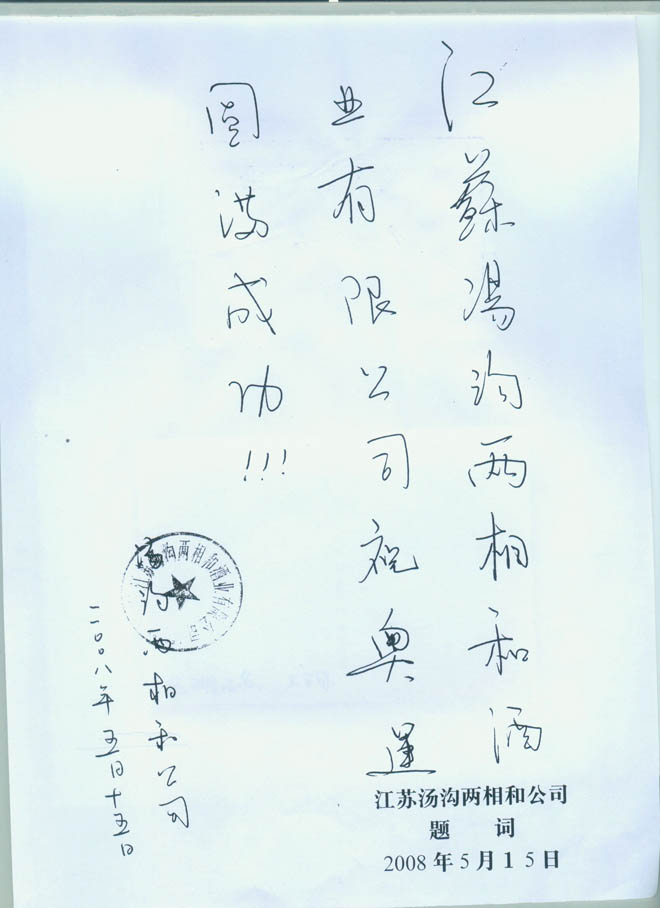 江蘇湯沟两相和酒
业有限公司祝奥運
圆满成功!!!
湯沟两相和公司
二〇〇八年五月十五日
江苏汤沟两相和酒业有限公司
江苏汤沟两相和公司
题 词
2008 年 5 月 1 5 日